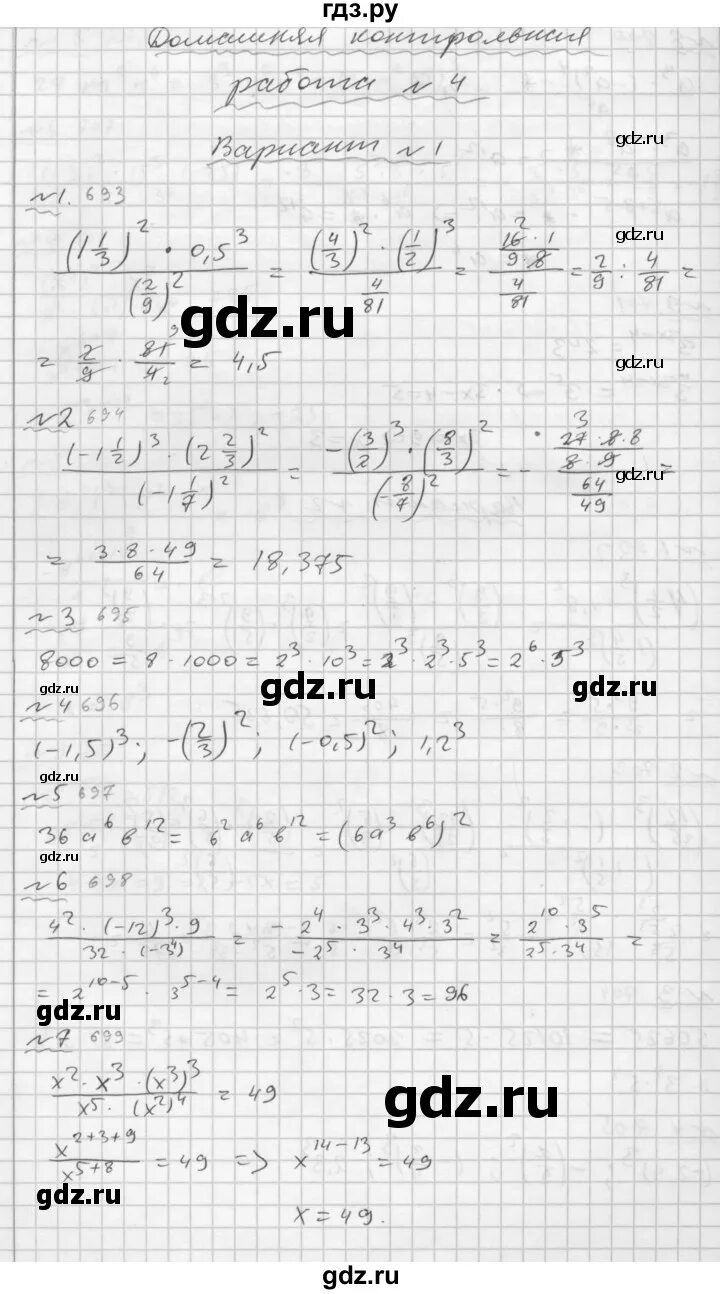 гдз.ру
Домашняя контрольная
работа №4
gdz.ru
Вариант №1
№1. 693
gdz.ru
(1 1/3)^2 · 0,5^3 / (2/9)^2 = (4/3)^2 · (1/2)^3 / (4/81) = (16 · 1 / 9 · 8) / (4/81) = 2/9 : 4/81 =
gdz.ru
= 2/9 · 81/4 = 4,5
gdz.ru
№2 694
(-1 1/2)^3 · (2 2/3)^2 / (-1 1/7)^2 = -(3/2)^3 · (8/3)^2 / (-8/7)^2 = - (27 · 8 · 8 / 8 · 9) / (64/49) =
gdz.ru
= 3 · 8 · 49 / 64 = 18,375
№3 695
gdz.ru
8000 = 8 · 1000 = 2^3 · 10^3 = 2^3 · 2^3 · 5^3 = 2^6 · 5^3
gdz.ru gdz.ru gdz.ru
№4 696
(-1,5)^3; -(2/3)^2; (-0,5)^2; 1,2^3
gdz.ru
№5 697
36 a^6 b^12 = 6^2 a^6 b^12 = (6a^3 b^6)^2
gdz.ru
№6 698
4^2 · (-12)^3 · 9 / 32 · (-3^4) = -2^4 · 3^3 · 4^3 · 3^2 / -2^5 · 3^4 = 2^10 · 3^5 / 2^5 · 3^4 =
= 2^10-5 · 3^5-4 = 2^5 · 3 = 32 · 3 = 96
gdz.ru
№7 699
x^2 · x^3 · (x^3)^3 / x^5 · (x^2)^4 = 49
gdz.ru
x^2+3+9 / x^5+8 = 49 => x^14-13 = 49
gdz.ru
x = 49.
gdz.ru